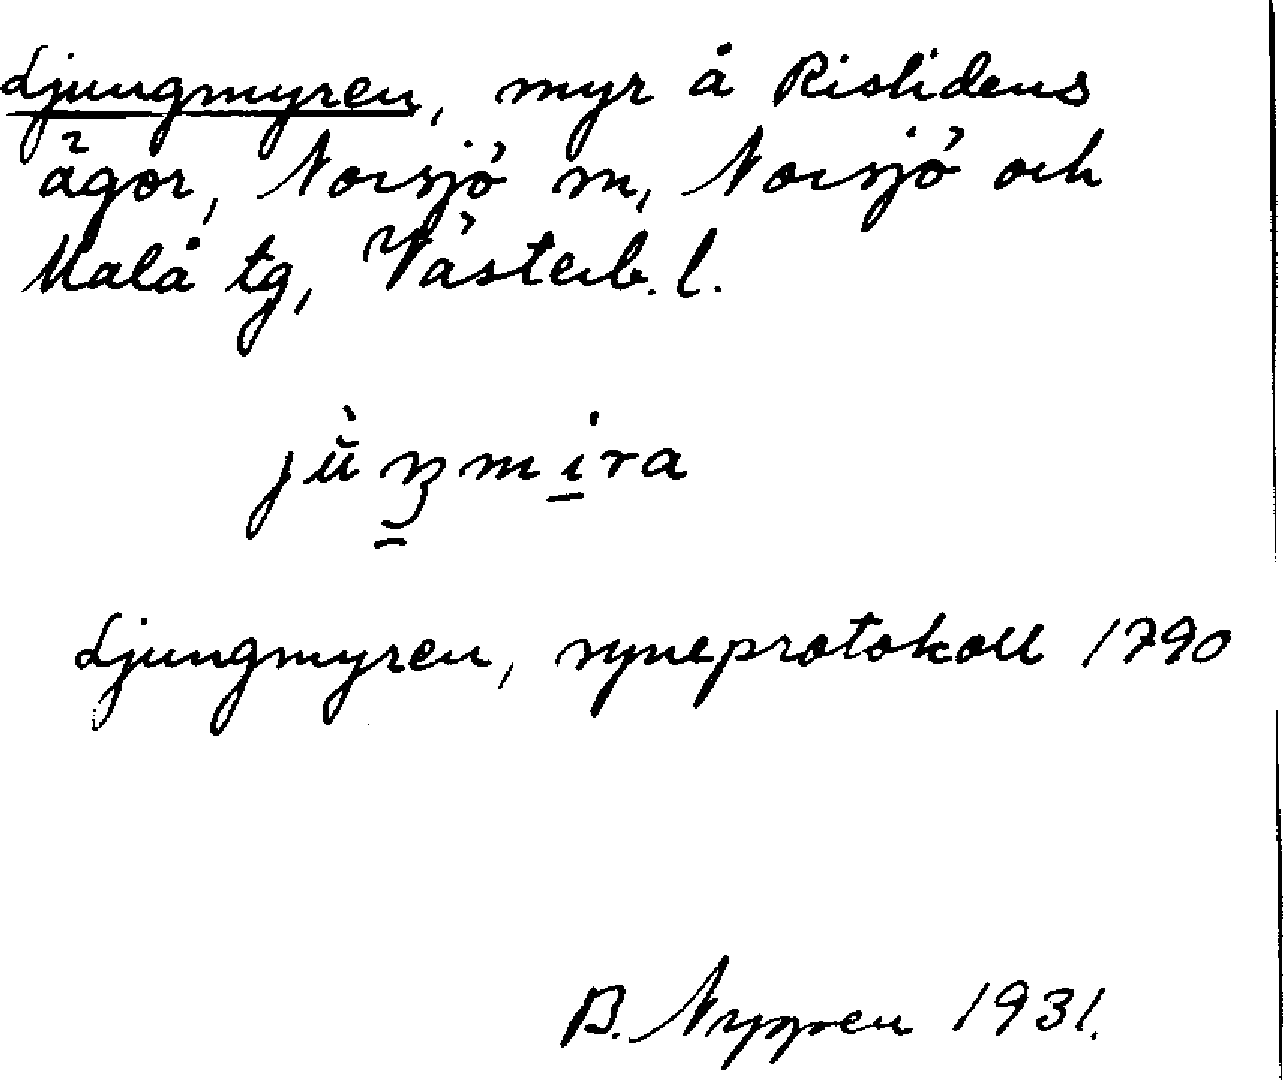 Ljungmyren, myr å Rislidens
ägor, Norsjö sn, Norsjö och
Malå tg, Västerb. l.
Ljungmyren, syneprotokoll 1790
B. Nygren 1931.